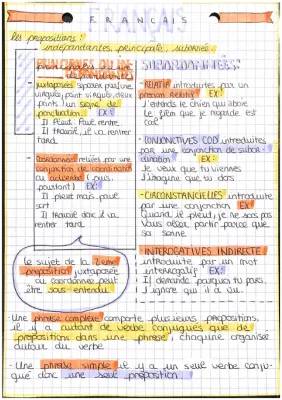 FRANÇAIS
les propositions :
indépendantes, principale, subordonnée.
SUBORDONNÉES:
indépendantes
- juxtaposées séparées par une
virgule, point virgule, deux
points (un signe de
ponctuation. EX:
Il pleut, il rentre.
Il travail, il va rentrer
tard.
- Coordonnées reliées par une
conjonction de coordination
ou adverbe (puis,
pourtant) EX:
Il pleut mais Paul
sort.
Il travail donc il va
rentrer tard.
le sujet de la 2ème
proposition juxtaposée
ou coordonnée peut
être sous-entendu
- RELATIF introduites par un
pronom relatif EX:
J'entends le chien qui aboie
Le film que je regarde est
cool
- CONJONCTIVES COD introduites
par une conjonction de subor-
dination EX:
Je veux que tu viennes
J'imagine que tu dors
- CIRCONSTANCIELLES introduite
par une conjonction EX:
Quand il pleut, je ne sors pas
partir parce que
sonne
INTERROGATIVES INDIRECTE :
introduite par un mot
interrogatif EX:
Il demande pourquoi tu pars.
J'ignore qui il a vu.
- Une phrase complexe comporte plusieurs propositions.
il y a autant de verbe conjugués que de
propositions dans une phrase, chaqune organisée
autour du verbe
- Une phrase simple il y a un seul verbe conju-
gué donc une seul proposition